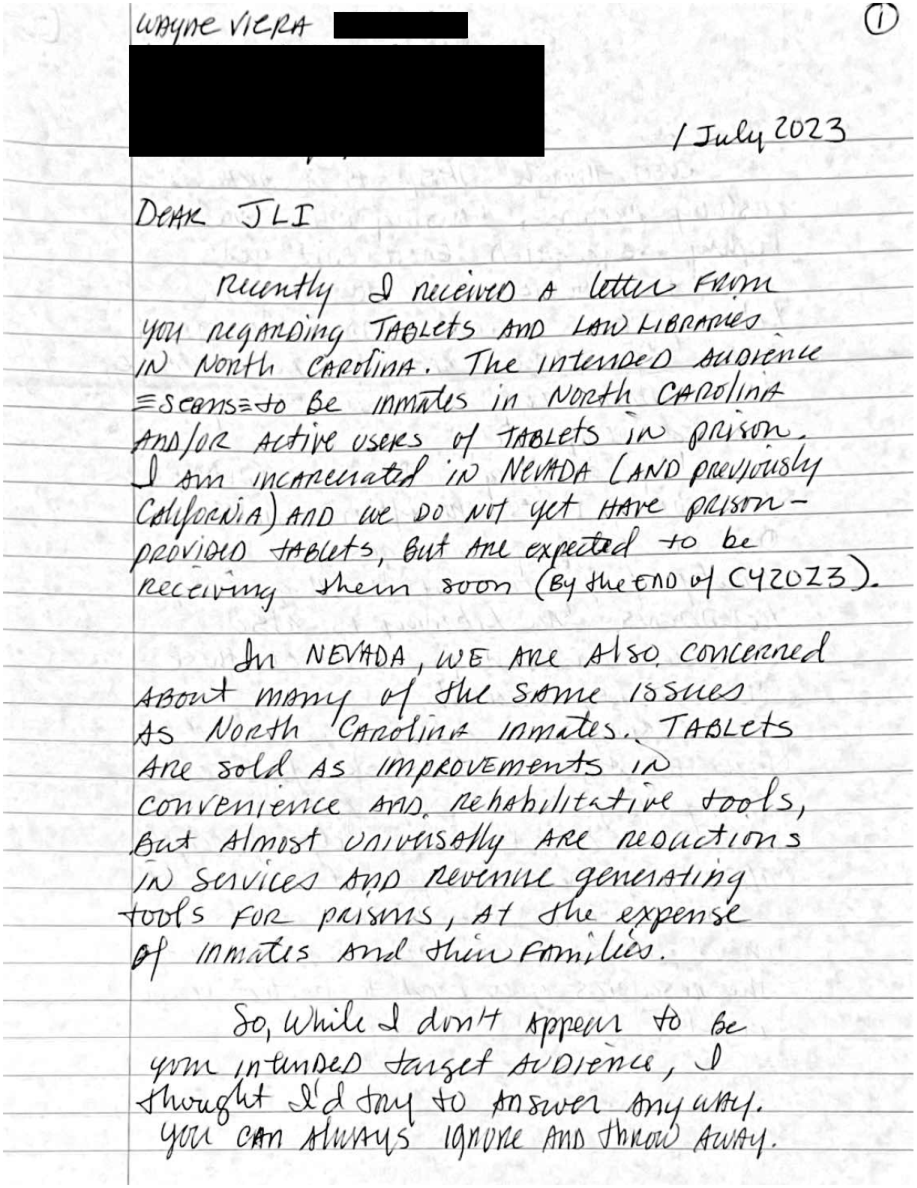 WAYNE VIERA
①
1 July 2023
DEAR JLI
Recently I received A letter FROM
you regarding TABLETS AND LAW LIBRARIES
IN NORTH CAROLINA. The INTENDED AUDIENCE
seems to BE inmates in NORTH CAROLINA
AND/OR ACTIVE USERS of TABLETS in prison.
I am incarcerated in NEVADA (AND previously
CALIFORNIA) AND WE DO NOT yet HAVE prison-
PROVIDED tABLETS, BUT ARE expected to be
receiving them soon (By the END of CY2023).
In NEVADA, WE ARE Also concerned
ABOUT many of the SAME ISSUES
AS NORTH CAROLINA inmates. TABLETS
ARE sold AS IMPROVEMENTS IN
CONVENIENCE AND rehabilitative tools,
BUT Almost UNIVERSALLY ARE REDUCTIONS
IN Services AND Revenue generating
tools FOR prisons, At the expense
of inmates and their Families.
So, While I don't Appear to BE
your INTENDED target AUDIENCE, I
thought I'd try to Answer AnywAY.
You CAN Always IGNORE AND throw AWAY.